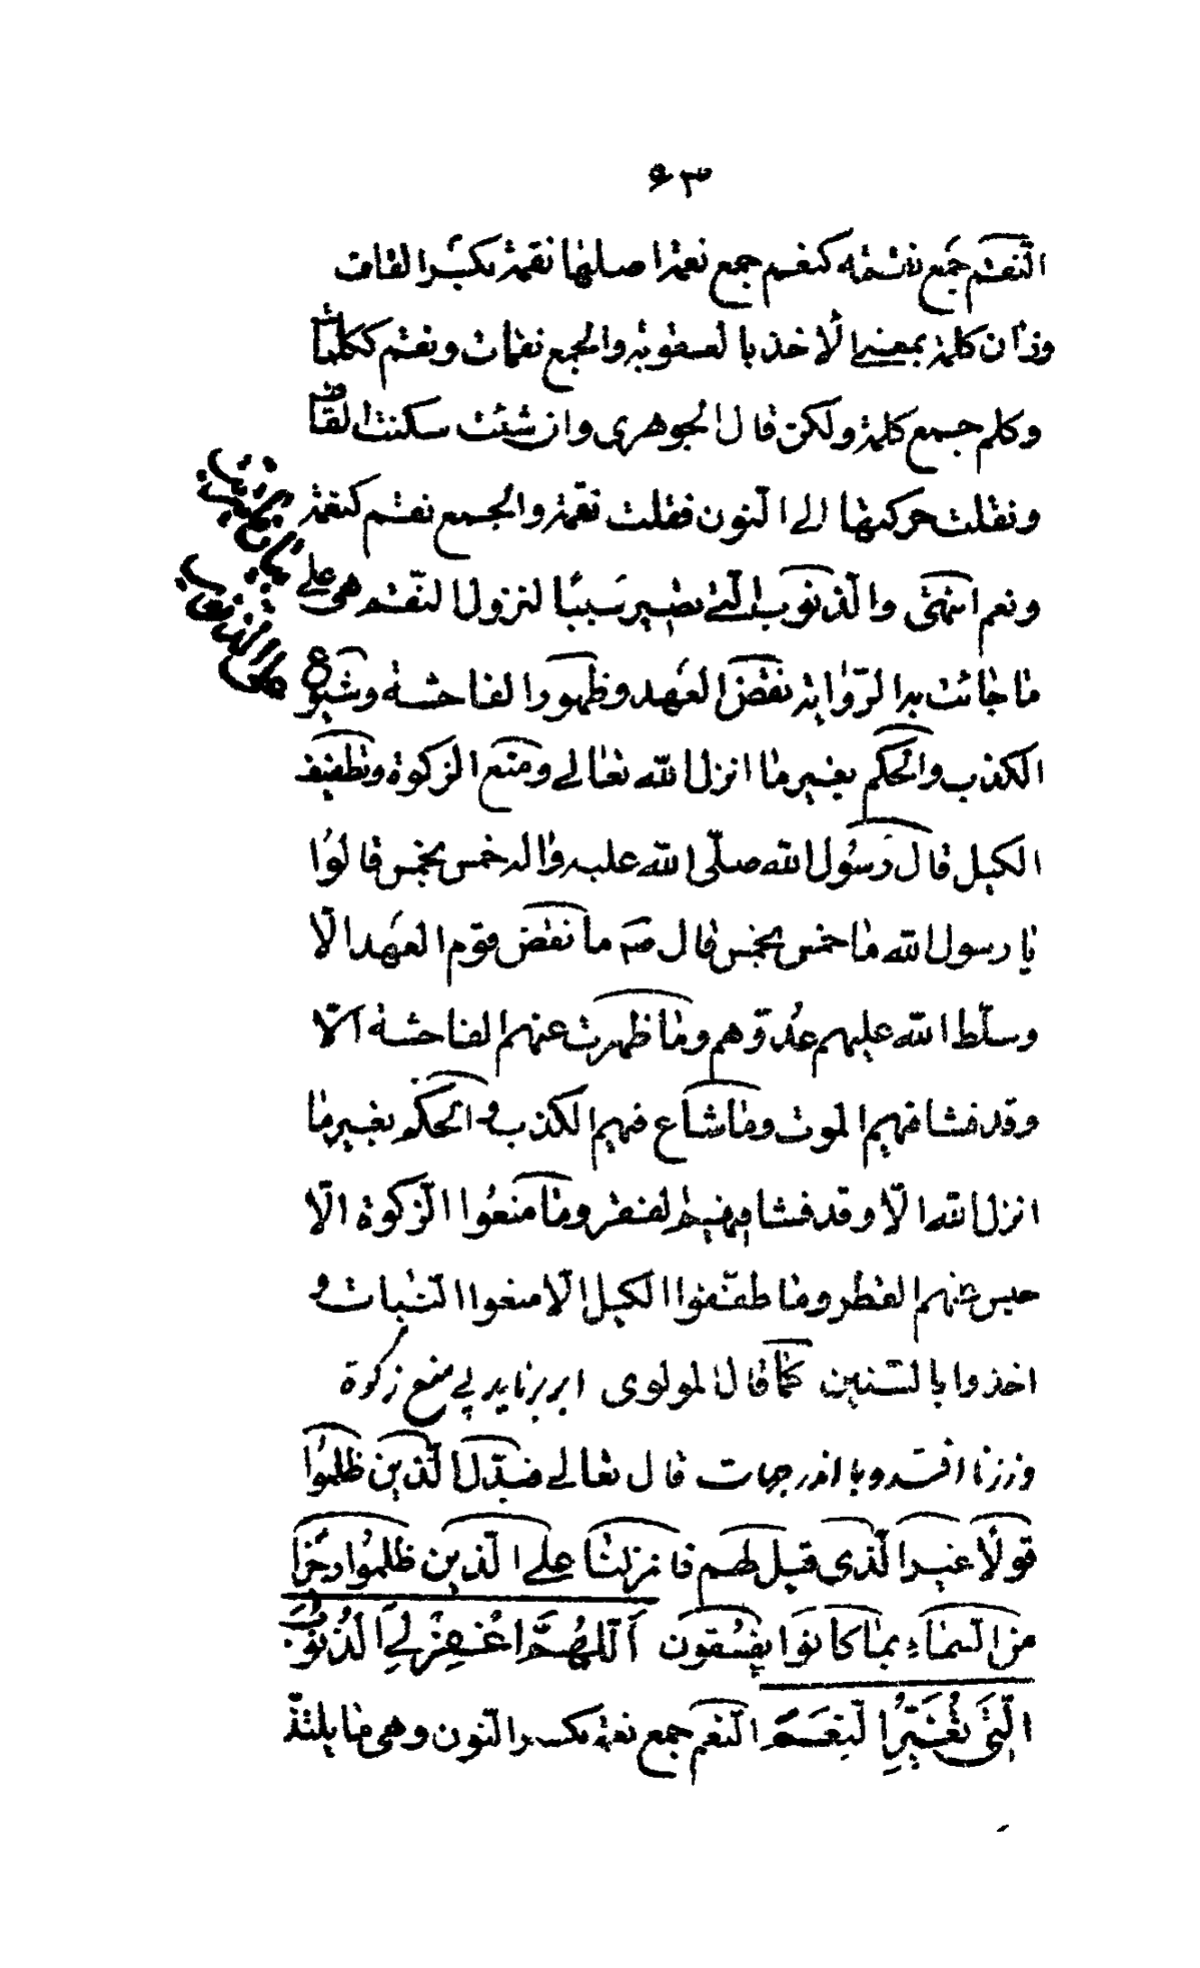 ۶۳
النقم جمع نقمة كنعم جمع نعمة اصلها نقمة بكسر القاف
وزان كلمة بمعنى الاخذ بالعقوبة والجمع نقمات ونقم ككلمات
وكلم جمع كلمة ولكن قال الجوهرى وان شئت سكنت القاف
ونقلت حركتها الى النون فقلت نقمة والجمع نقم كنعمة
ونعم انتهى والذنوب التى تصير سببا لنزول النقم هى على
ما جائت به الرواية نقض العهد وظهور الفاحشة وشيوع
الكذب والحكم بغير ما انزل الله تعالى ومنع الزكوة وتطفيف
الكيل قال رسول الله صلّى الله عليه واله خمس بخمس قالوا
يا رسول الله ما خمس بخمس قال صم ما نقض قوم العهد الّا
وسلّط الله عليهم عدوّهم وما ظهرت عنهم الفاحشة الّا
وقد فشا فيهم الموت وما شاع فيهم الكذب والحكم بغير ما
انزل الله الّا وقد فشا فيهم الفقر وما منعوا الزكوة الّا
حبس عنهم القطر وما طفّفوا الكيل الّا منعوا النّبات و
اخذوا بالسّنين كما قال المولوى ابر برنايد پى منع زكوة
وززنا افتد وبا اندر جهات قال تعالى فبدّل الّذين ظلموا
قولا غير الّذى قيل لهم فانزلنا على الّذين ظلموا رجزا
من السّماء بما كانوا يفسقون اَللّهُمَّ اغْفِرْ لِىَ الذُّنُوبَ
الَّتى تُغَيِّرُ النِّعَمَ النعم جمع نعمة بكسر النّون وهى ما يلتذّ